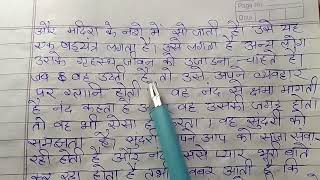 और मदिरा के नशे में सो जाती है। उसे यह
एक षड्यंत्र लगता है। उसे लगता है अन्य लोग
उसके गृहस्थ जीवन को उजाड़ना चाहते हैं।
जब वह उठती है तो उसे अपने व्यवहार
पर ग्लानि होती वह नंद से क्षमा मांगती
है नंद कहता है उसकी जगह होता
तो वह भी ऐसा करता। वह सुंदरी को
समझाता है। सुंदरी अपने आप को
रही होती है और नंद उससे प्यार भरी बातें
कर रहा होता है तभी खबर आती है कि
Page No.